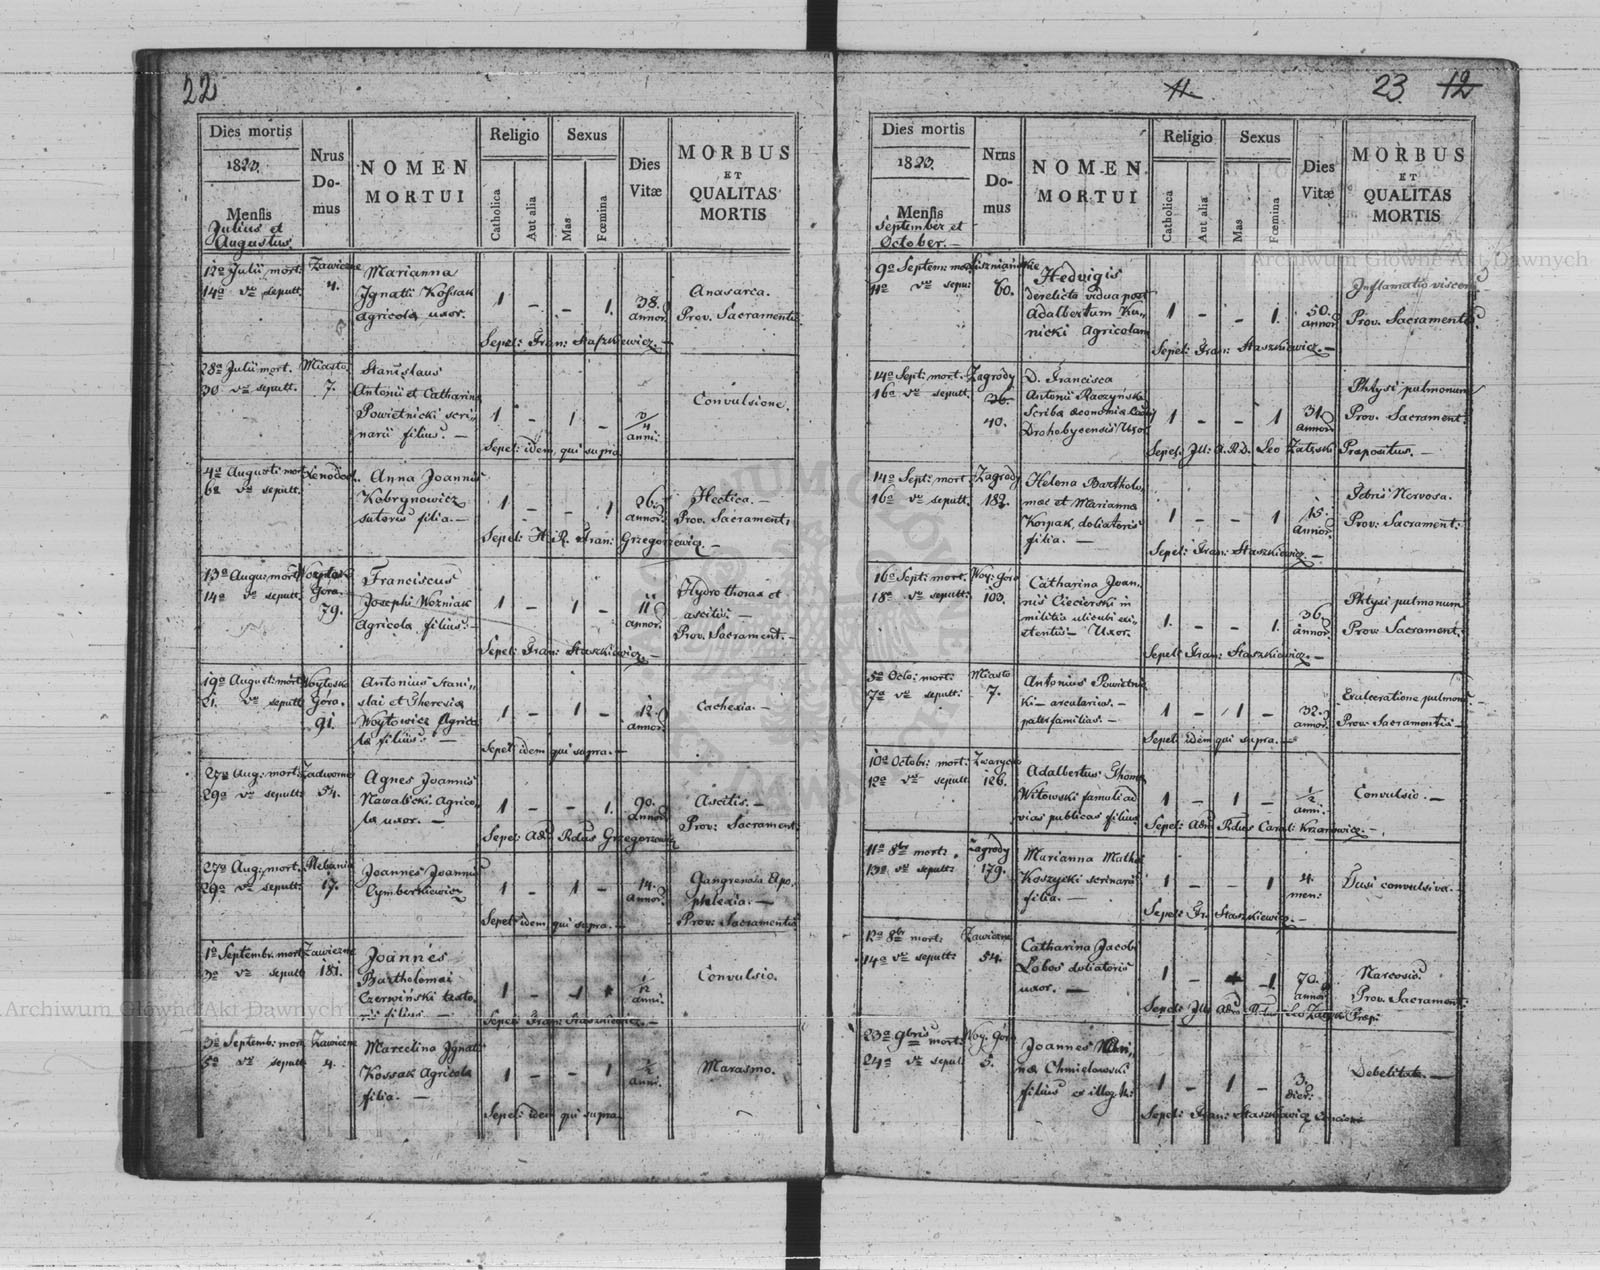 22
Dies mortis
1820.
Mensis
Julius et
Augustus
Nrus
Do-
mus
NOMEN
MORTUI
Religio
Catholica
Aut alia
Sexus
Mas
Fœmina
Dies
Vitæ
MORBUS
ET
QUALITAS
MORTIS
12a Julii mort:
14a sepult.
Zawiczne
4.
Marianna
Ignatii Kossak
Agricolæ uxor.
1 - - 1.
38.
annor.
Anasarca.
Prov. Sacramentis
Sepel: Fran: Staszkiewicz. -
28a Julii mort.
30 sepult.
Miasto
7.
Stanislaus
Antonii et Catharinæ
Powietnicki scri-
narii filius. -
1 - 1 -
anni.
Convulsione.
Sepel: idem qui supra
4a Augusti mort
6a sepult.
Anna Joannis
Kobrynowicz
sutoris filia. -
1 - - 1
26.
annor.
Hectica. -
Prov. Sacrament:
Sepel: Fran: Grzegorzewicz. -
13a Augus: mort
14a sepult:
Góra.
79.
Franciscus
Josephi Wozniak
Agricola filius. -
1 - 1 -
11
annor.
Hydrothorax et
ascitis. -
Prov. Sacrament. -
Sepel: Fran: Staszkiewicz. -
19a August: mort
21. sepult
Woytoska
Góra.
91.
Antonius Stani-
slai et Theresiæ
Woytowicz Agrico
læ filius. -
1 - 1 -
12.
annor.
Cachexia. -
Sepel: idem qui supra. -
27a Aug: mort:
29a sepult:
Zadworne
54.
Agnes Joannis
Nawalicki Agrico-
læ uxor. -
1 - - 1.
90.
annor.
Ascitis. -
Prov: Sacrament:
Sepel: Adm Rdus Grzegorzewicz
27a Aug: mort.
29a sepult:
Plebania
17.
Joannes Joannis
Cymberkiewicz
1 - 1 -
14.
annor.
Gangrenosa Apo-
phlexia. -
Prov: Sacramentis
Sepel: idem qui supra. -
1a Septembr. mort
3a sepult
Zawiczne
181.
Joannes
Bartholomei
Czerwiński texto-
ris filius. -
1 - 1
anni.
Convulsio.
Sepel: Fran: Staszkiewicz. -
3a Septemb: mort
5a sepult
Zawiczne
4.
Marcelina Ignatii
Kossak Agricolæ
filia. -
1 - - 1
½
anni.
Marasmo.
Sepel: idem qui supra.
11.
23 12
Dies mortis
1820.
Mensis
September et
October. -
Nrus
Do-
mus
NOMEN
MORTUI
Religio
Catholica
Aut alia
Sexus
Mas
Fœmina
Dies
Vitæ
MORBUS
ET
QUALITAS
MORTIS
9a Septem: mor
11a sepu:
60.
Hedvigis
derelicta vidua post
Adalbertum Ku-
nicki Agricolam
1 - - 1.
50.
annor.
Inflamatio viscerum
Prov. Sacramentis
Sepel: Fran: Staszkiewicz. -
14a Sept: mort.
16a sepult.
Zagrody
36.
40.
D. Francisca
Antonii Raczyński
Scribæ æconomiæ
Drohobycensis Uxor
1 - - 1
31.
annor.
Phtysi pulmonum
Prov. Sacrament:
Sepel: Ill: A.R.D. Leo Załęski Præpositus. -
14a Sept: mort
16a sepult.
Zagrody
182.
Helena Bartholo-
mæi et Marianna
Korpak doliatoris
filia. -
1 - - 1
15.
annor.
Febris Nervosa.
Prov: Sacrament:
Sepel: Fran: Staszkiewicz. -
16a Sept: mort.
18a sepult:
Woy: Góra
103.
Catharina Joan-
nis Ciecierski in
militia alicubi exi-
stentis - Uxor.
1. - - 1.
36.
annor.
Phtysi pulmonum
Prov: Sacrament.
Sepel: Fran: Staszkiewicz. -
5a Octo: mort:
7a sepult:
Miasto
7.
Antonius Powietnic-
ki - arcularius. -
paterfamilias. -
1 - 1 -
32.
annor.
Exulceratione pulmonis
Prov: Sacramentis -
Sepel: idem qui supra. -
10a Octobr: mort:
12a sepult
Zwarycze
126.
Adalbertus Thoma
Witowski famuli ad
vias publicas filius
1 - 1 -
½
anni.
Convulsio. -
Sepel: Adm Rdus Carol: Krzanowicz. -
11a 8bris mort:
13a sepult:
Zagrody
179.
Marianna Mathei
Koszycki scrinarii
filia. -
1 - - 1
4.
men:
Tusi convulsiva. -
Sepel: Fr: Staszkiewicz. -
12a 8bris mort:
14a sepult:
Zawiczne
54.
Catharina Jacobi
Lobos doliatoris
uxor. -
1 - 1
70.
annor.
Narcosis
Prov. Sacrament:
Sepel: Ill: Adm R. Leo Załęski Præp:
23a 9bris mort:
24a sepul
Woy: Góra
5.
Joannes
Chmielowski
filius
1 - 1 -
3.
dier:
Debelitate. -
Sepel: Fran: Staszkiewicz
Archiwum Główne Akt Dawnych
Archiwum Główne Akt Dawnych
ARCHIWUM GŁÓWNE AKT DAWNYCH